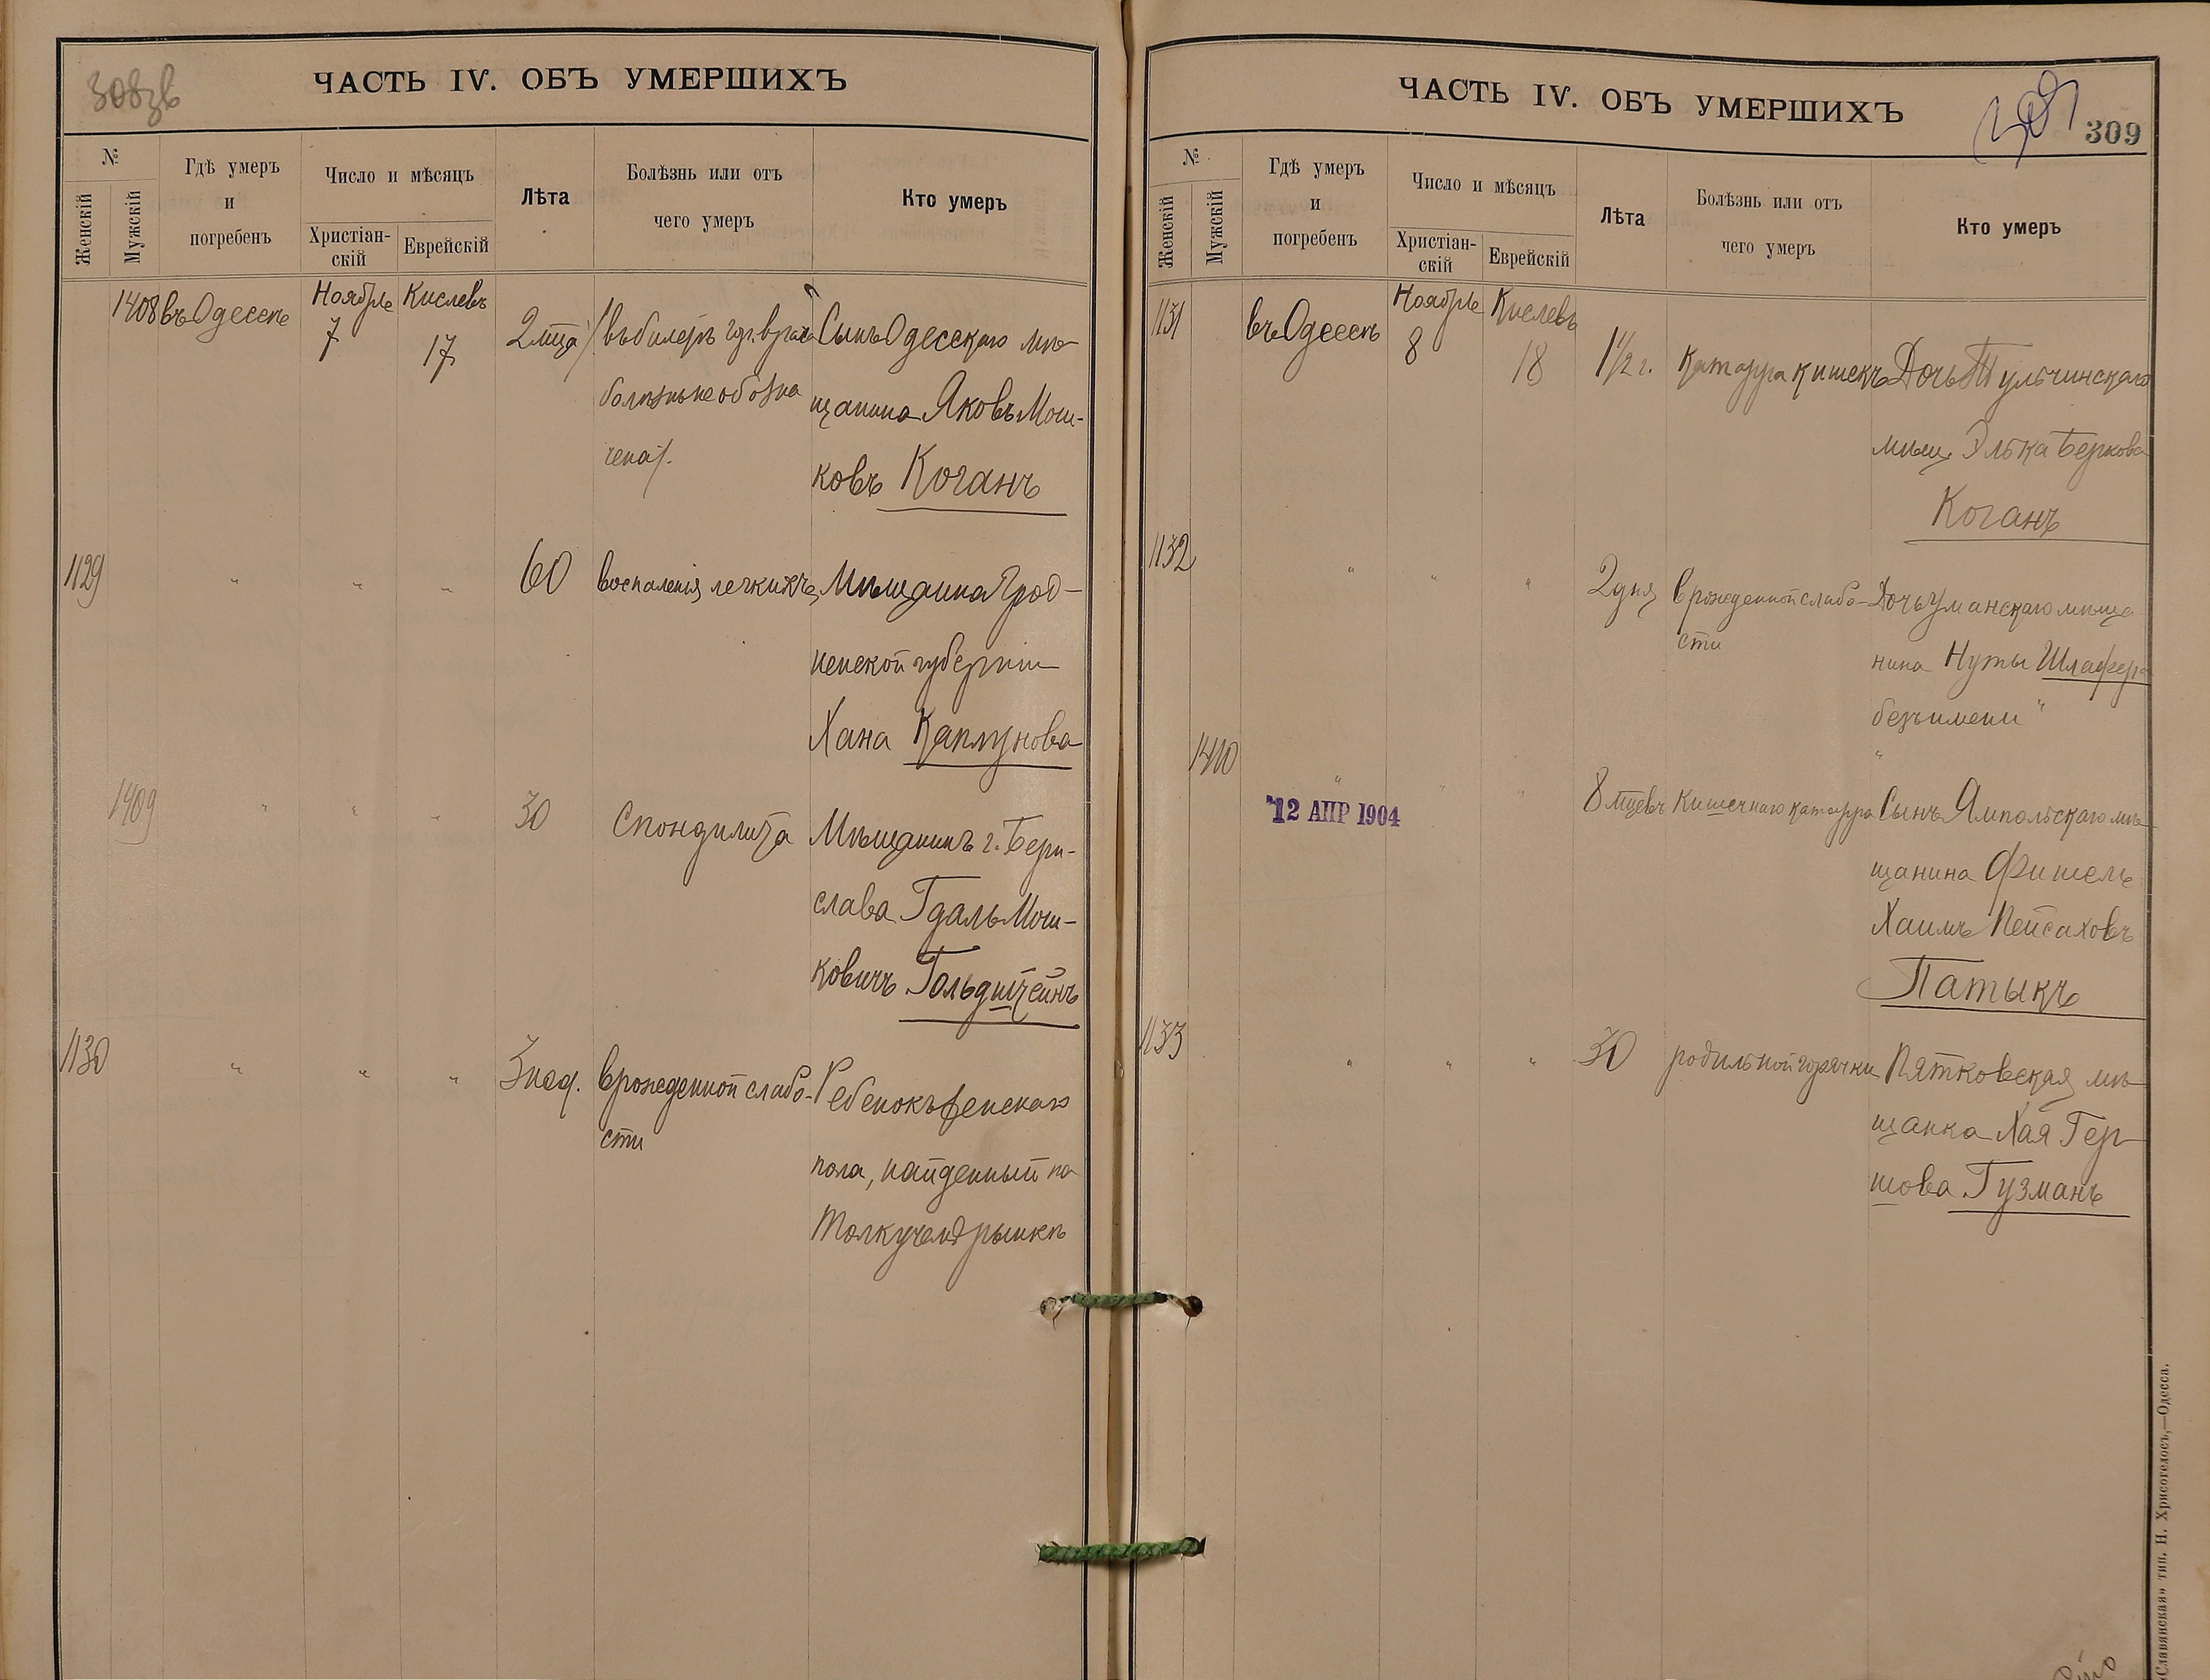 308 зв
ЧАСТЬ IV. ОБЪ УМЕРШИХЪ
№
Женскій
Мужскій
Гдѣ умеръ
и
погребенъ
Число и мѣсяцъ
Христіан-
скій
Еврейскій
Лѣта
Болѣзнь или отъ
чего умеръ
Кто умеръ
1408 въ Одессѣ Ноября 7 Кислевъ 17 2 мѣца /въ билетѣ гор. врача Сынъ Одесскаго мѣ-
болѣзнь не обозна щанина Яковъ Мош-
чена/. ковъ Коганъ
1129 " " " 60 воспаленія легкихъ Мѣщанка Грод-
ненской губерніи
Хана Каплунова
1409 " " " 30 Спондилита Мѣщанинъ г. Бери-
слава Гдаль Мош-
ковичъ Гольдштейнъ
1130 " " " 3 нед. врожденной слабо- Ребенокъ женскаго
сти пола, найденный на
Толкучемъ рынкѣ
ЧАСТЬ IV. ОБЪ УМЕРШИХЪ
309
309
№
Женскій
Мужскій
Гдѣ умеръ
и
погребенъ
Число и мѣсяцъ
Христіан-
скій
Еврейскій
Лѣта
Болѣзнь или отъ
чего умеръ
Кто умеръ
1131 въ Одессѣ Ноября 8 Кислевъ 18 1 1/2 г. катарра кишекъ Дочь Тульчинскаго
мѣщ. Элька Беркова
Коганъ
1132 " " " 2 дня врожденной слабо- Дочь Уманскаго мѣща
сти нина Нуты Шлафера
безъ имени "
1410 " " " 8 мцевъ кишечнаго катарра Сынъ Ямпольскаго мѣ-
12 АПР 1904
щанина Фишель
Хаимъ Пейсаховъ
Патыкъ
1133 " " " 30 родильной горячки Пятковская мѣ-
щанка Хая Гер-
шова Гузманъ
«Славянская» тип. Н. Хрисогелосъ,—Одесса.